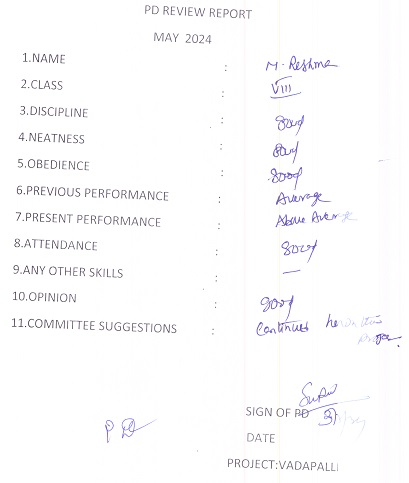 PD REVIEW REPORT
MAY 2024
1.NAME : M. Reshma
2.CLASS : VIII
3.DISCIPLINE : Good
4.NEATNESS : Good
5.OBEDIENCE : Good
6.PREVIOUS PERFORMANCE : Average
7.PRESENT PERFORMANCE : Above Average
8.ATTENDANCE : Good
9.ANY OTHER SKILLS : —
10.OPINION : Good
11.COMMITTEE SUGGESTIONS : Continues
SIGN OF PD
PD
DATE
PROJECT:VADAPALLI